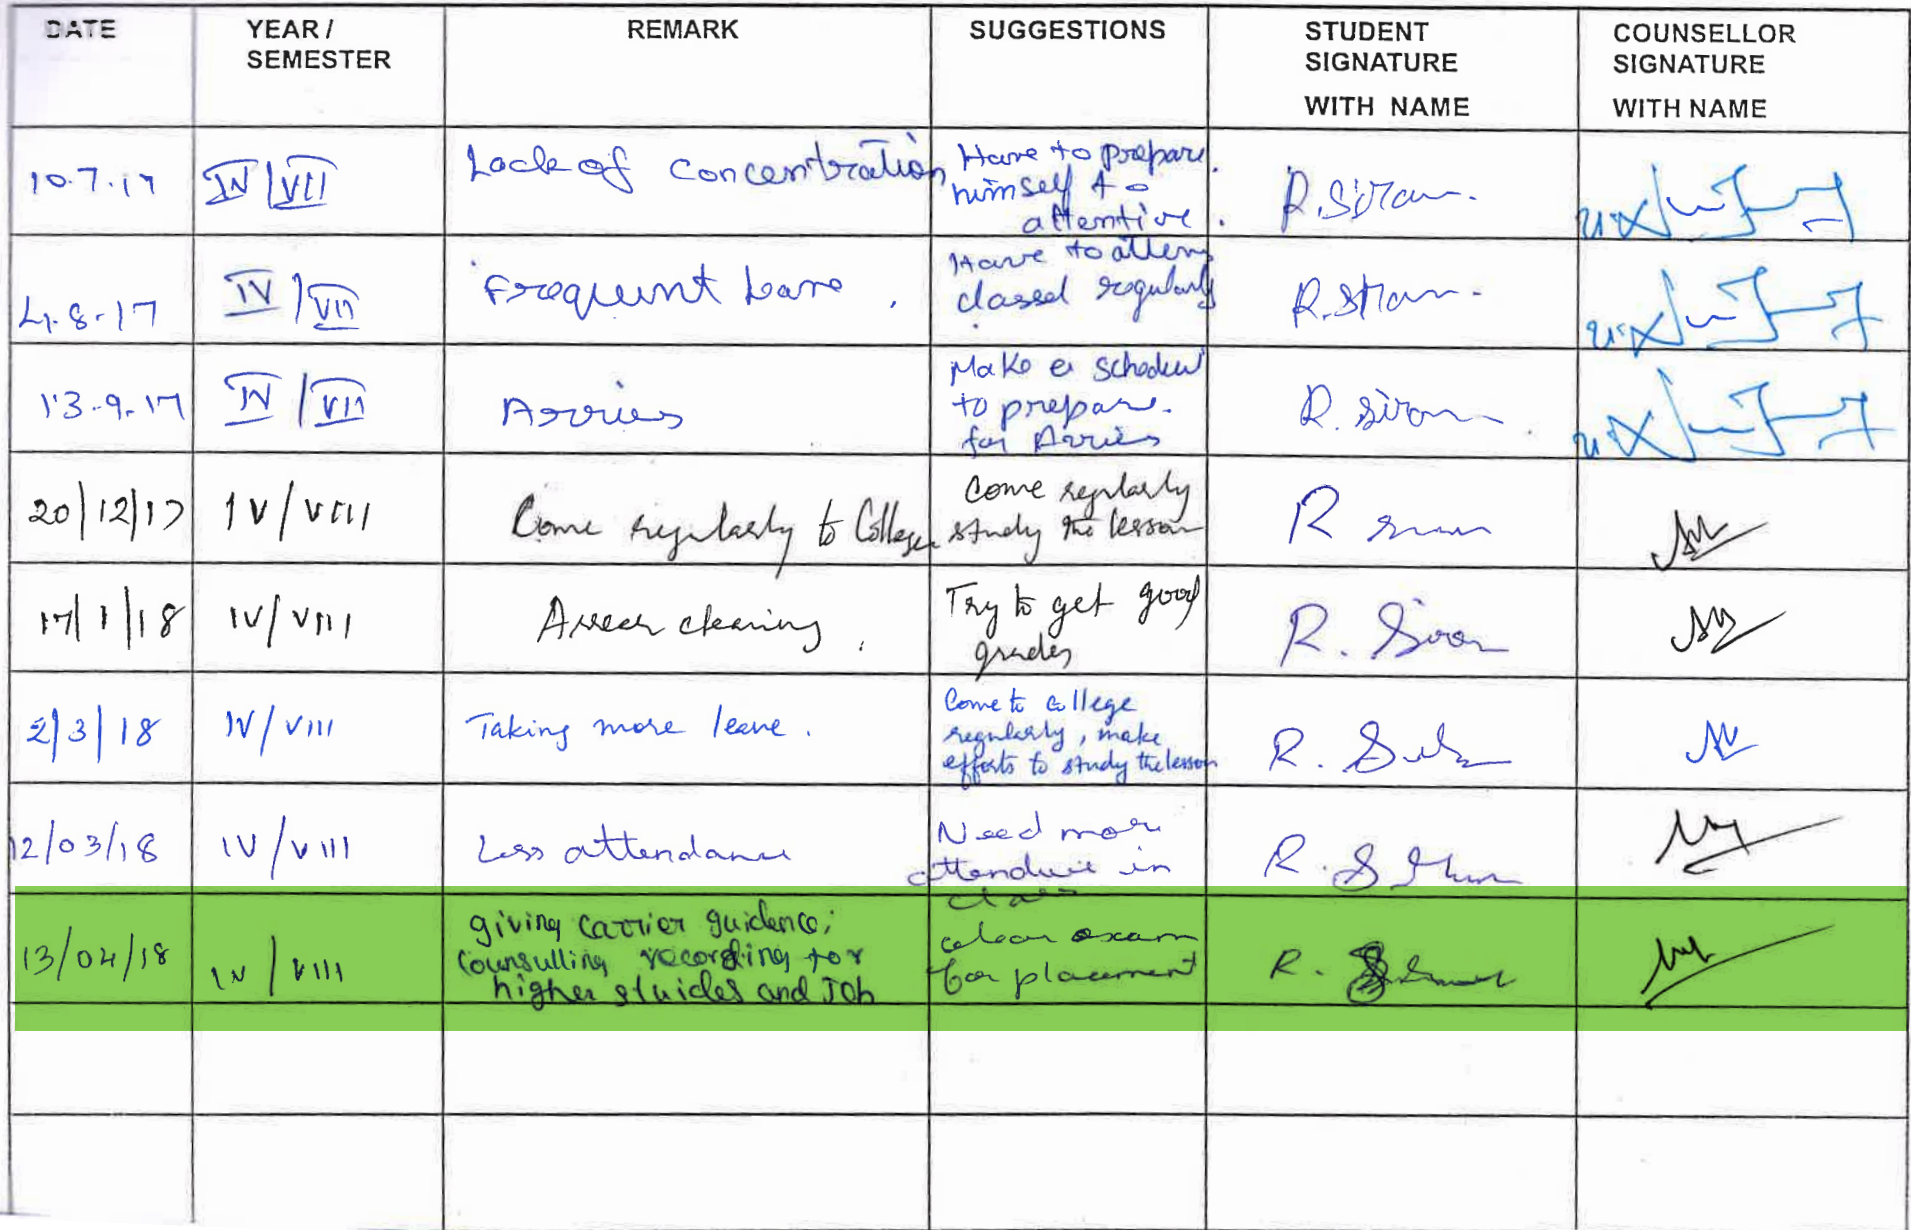 DATE YEAR / SEMESTER REMARK SUGGESTIONS STUDENT SIGNATURE WITH NAME COUNSELLOR SIGNATURE WITH NAME
10.7.17 IV/VII Lack of Concentration Have to prepare himself to attentive. R.Siran.
4.8.17 IV/VII Frequent Leave. Have to attend classed regularly R.Siran.
13.9.17 IV/VII Arries Make a schedul to prepare. for Arries R. Siran
20/12/17 IV/VIII Come regularly to College Come regularly study the lesson R
17/1/18 IV/VIII Arrear clearing. Try to get good grades R. Siran
2/3/18 IV/VIII Taking more leave. Come to college regularly, make efforts to study the lesson R.
12/03/18 IV/VIII Less attendance Need more attendance in class R.
13/04/18 IV/VIII giving carrier guidence; counsulling recording for higher stuides and Job clear exam for placement R.